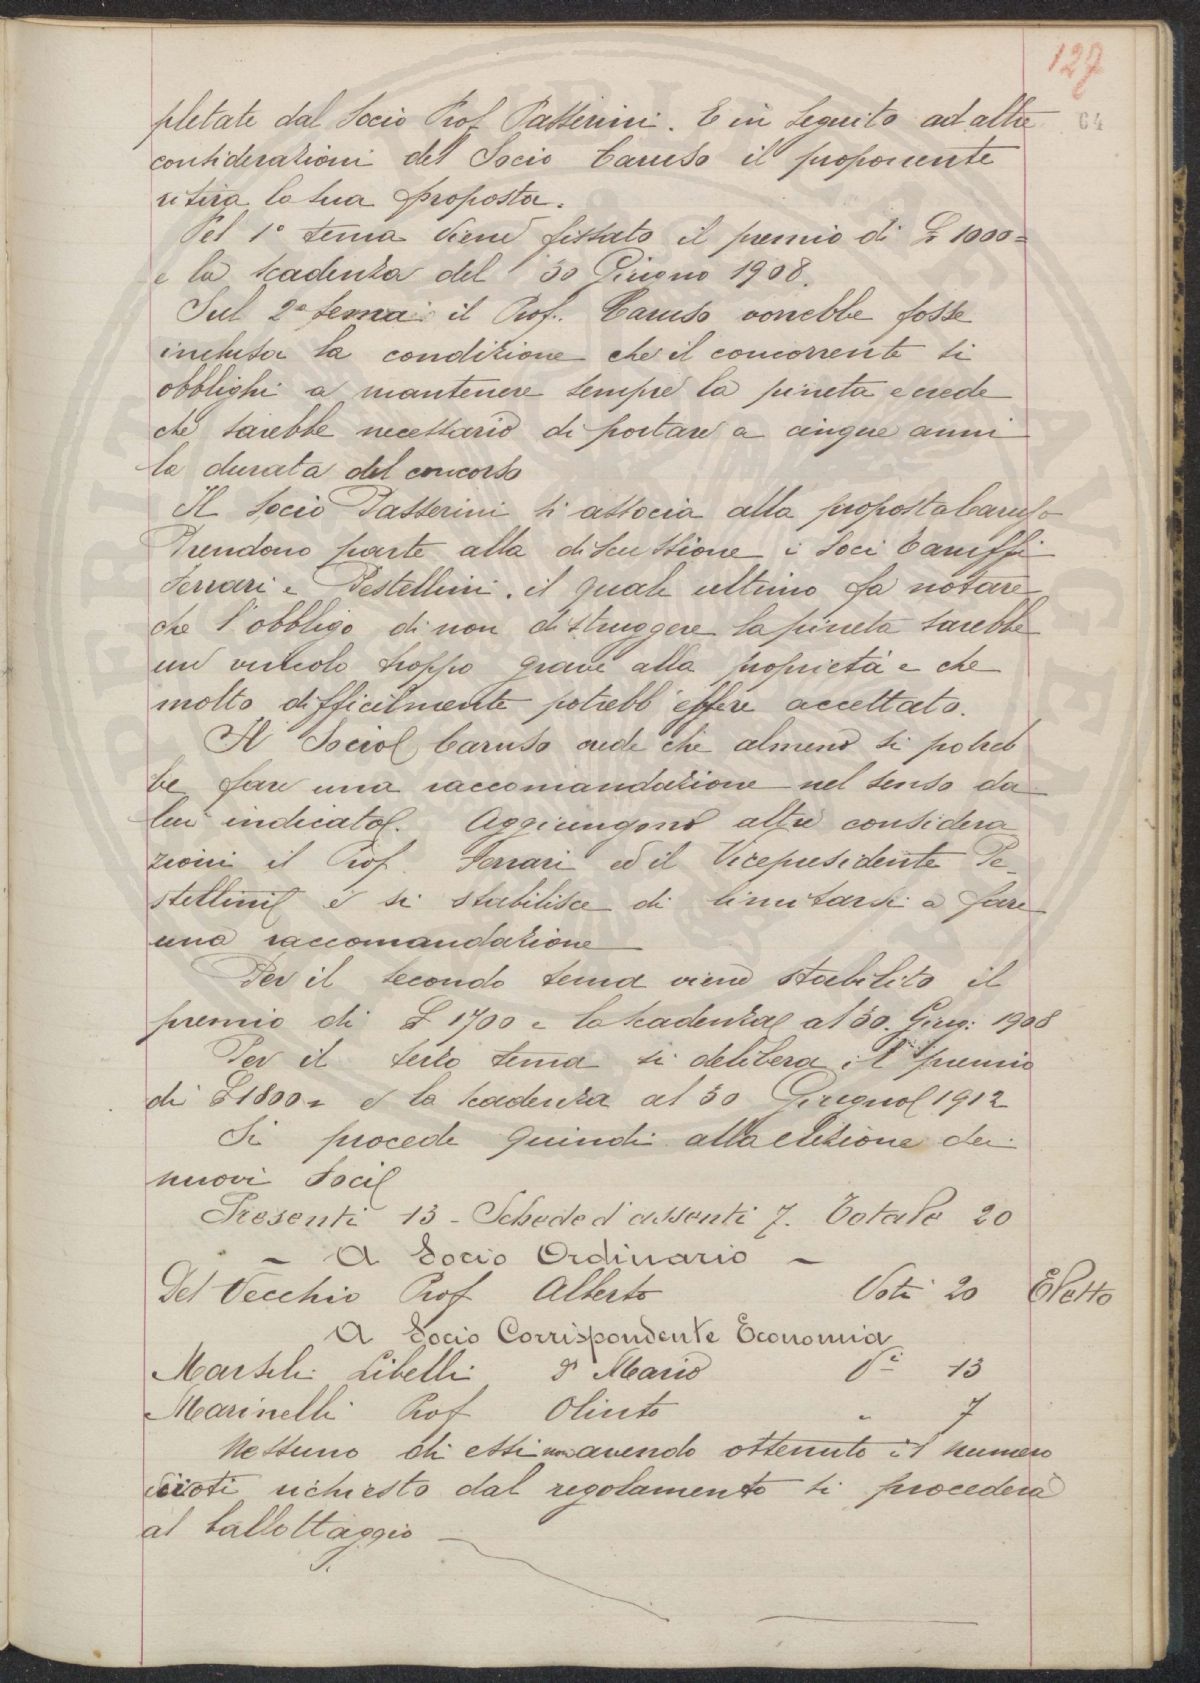 127
64
pletate dal Socio Prof Passerini. E in seguito ad altre
considerazioni del Socio Caruso il proponente
ritira la sua proposta.
Pel 1° tema viene fissato il premio di £ 1000=
e la scadenza del 30 Giugno 1908.
Sul 2° tema il Prof. Caruso vorrebbe fosse
inclusa la condizione che il concorrente si
obblighi a mantenere sempre la pineta e crede
che sarebbe necessario di portare a cinque anni
la durata del concorso
Il Socio Passerini si associa alla proposta Caruso
Prendono parte alla discussione i Soci Caruffi
Ferrari e Pestellini. il quale ultimo fa notare
che l'obbligo di non distruggere la pineta sarebbe
un vincolo troppo grave alla proprietà e che
molto difficilmente potrebb'essere accettato.
Il Socio Caruso crede che almeno si potreb
be fare una raccomandazione nel senso da
lui indicato. Aggiungono altre considera
zioni il Prof. Ferrari ed il Vicepresidente Pe_
stellini e si stabilisce di limitarsi a fare
una raccomandazione
Per il secondo tema viene stabilito il
premio di £ 1700 e la scadenza al 30. Giug: 1908
Per il terzo tema si delibera il premio
di £ 1800= e la scadenza al 30 Giugno 1912
Si procede quindi alla elezione dei
nuovi Soci
Presenti 13 - Schede d'assenti 7. Totale 20
- A Socio Ordinario -
Del Vecchio Prof Alberto Voti 20 Eletto
A Socio Corrispondente Economia
Marsili Libelli Dr Mario Vi 13
Marinelli Prof Olinto " 7
Nessuno di essi non avendo ottenuto il numero
di voti richiesto dal regolamento si procederà
al ballottaggio